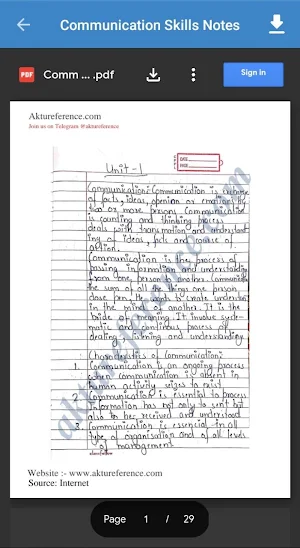 Communication Skills Notes
PDF Comm ... .pdf
Sign in
Aktureference.com
Join us on Telegram @aktureference
DATE
PAGE
Unit-1
Communication: Communication is
of facts, ideas, openion or emotion by
two or more persons. Communication
is counting and thinking process
deals with transmation and understand
ing of ideas, facts and course of
action.
Communication is the process of
passing information and understanding
from one person to another. Communication
the sum of all the things one person
does to create understan
in the mind of another. It is the
bride of meaning. It involve syste-
matic and continous process of
and understanding
Characteristics of Communication:
1. Communication is an ongoing process
when communication is absent in
human activity to exist
2. Communication is essential to process
Information has not only to sent but
also to be received and understood
3. Communication is essencial in all
type of organisation and of all levels
of management
aktureference.com
Website :- www.aktureference.com
Source: Internet
Page 1 / 29